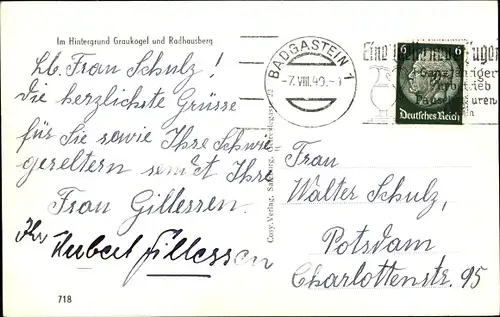 Im Hintergrund Graukogel und Radhausberg
Lb. Frau Schulz!
Die herzlichste Grüsse
für Sie sowie Ihre Schwie-
gereltern sendet Ihre
Frau Gillessen.
Ihr Hubert Gillessen
718
Cosy-Verlag, Salzburg,
BADGASTEIN 1
-7.VIII.40.-
Eine
Ganzjähriger
Betrieb
Pauschalkuren
6 6
Deutsches Reich
Frau
Walter Schulz,
Potsdam
Charlottenstr. 95